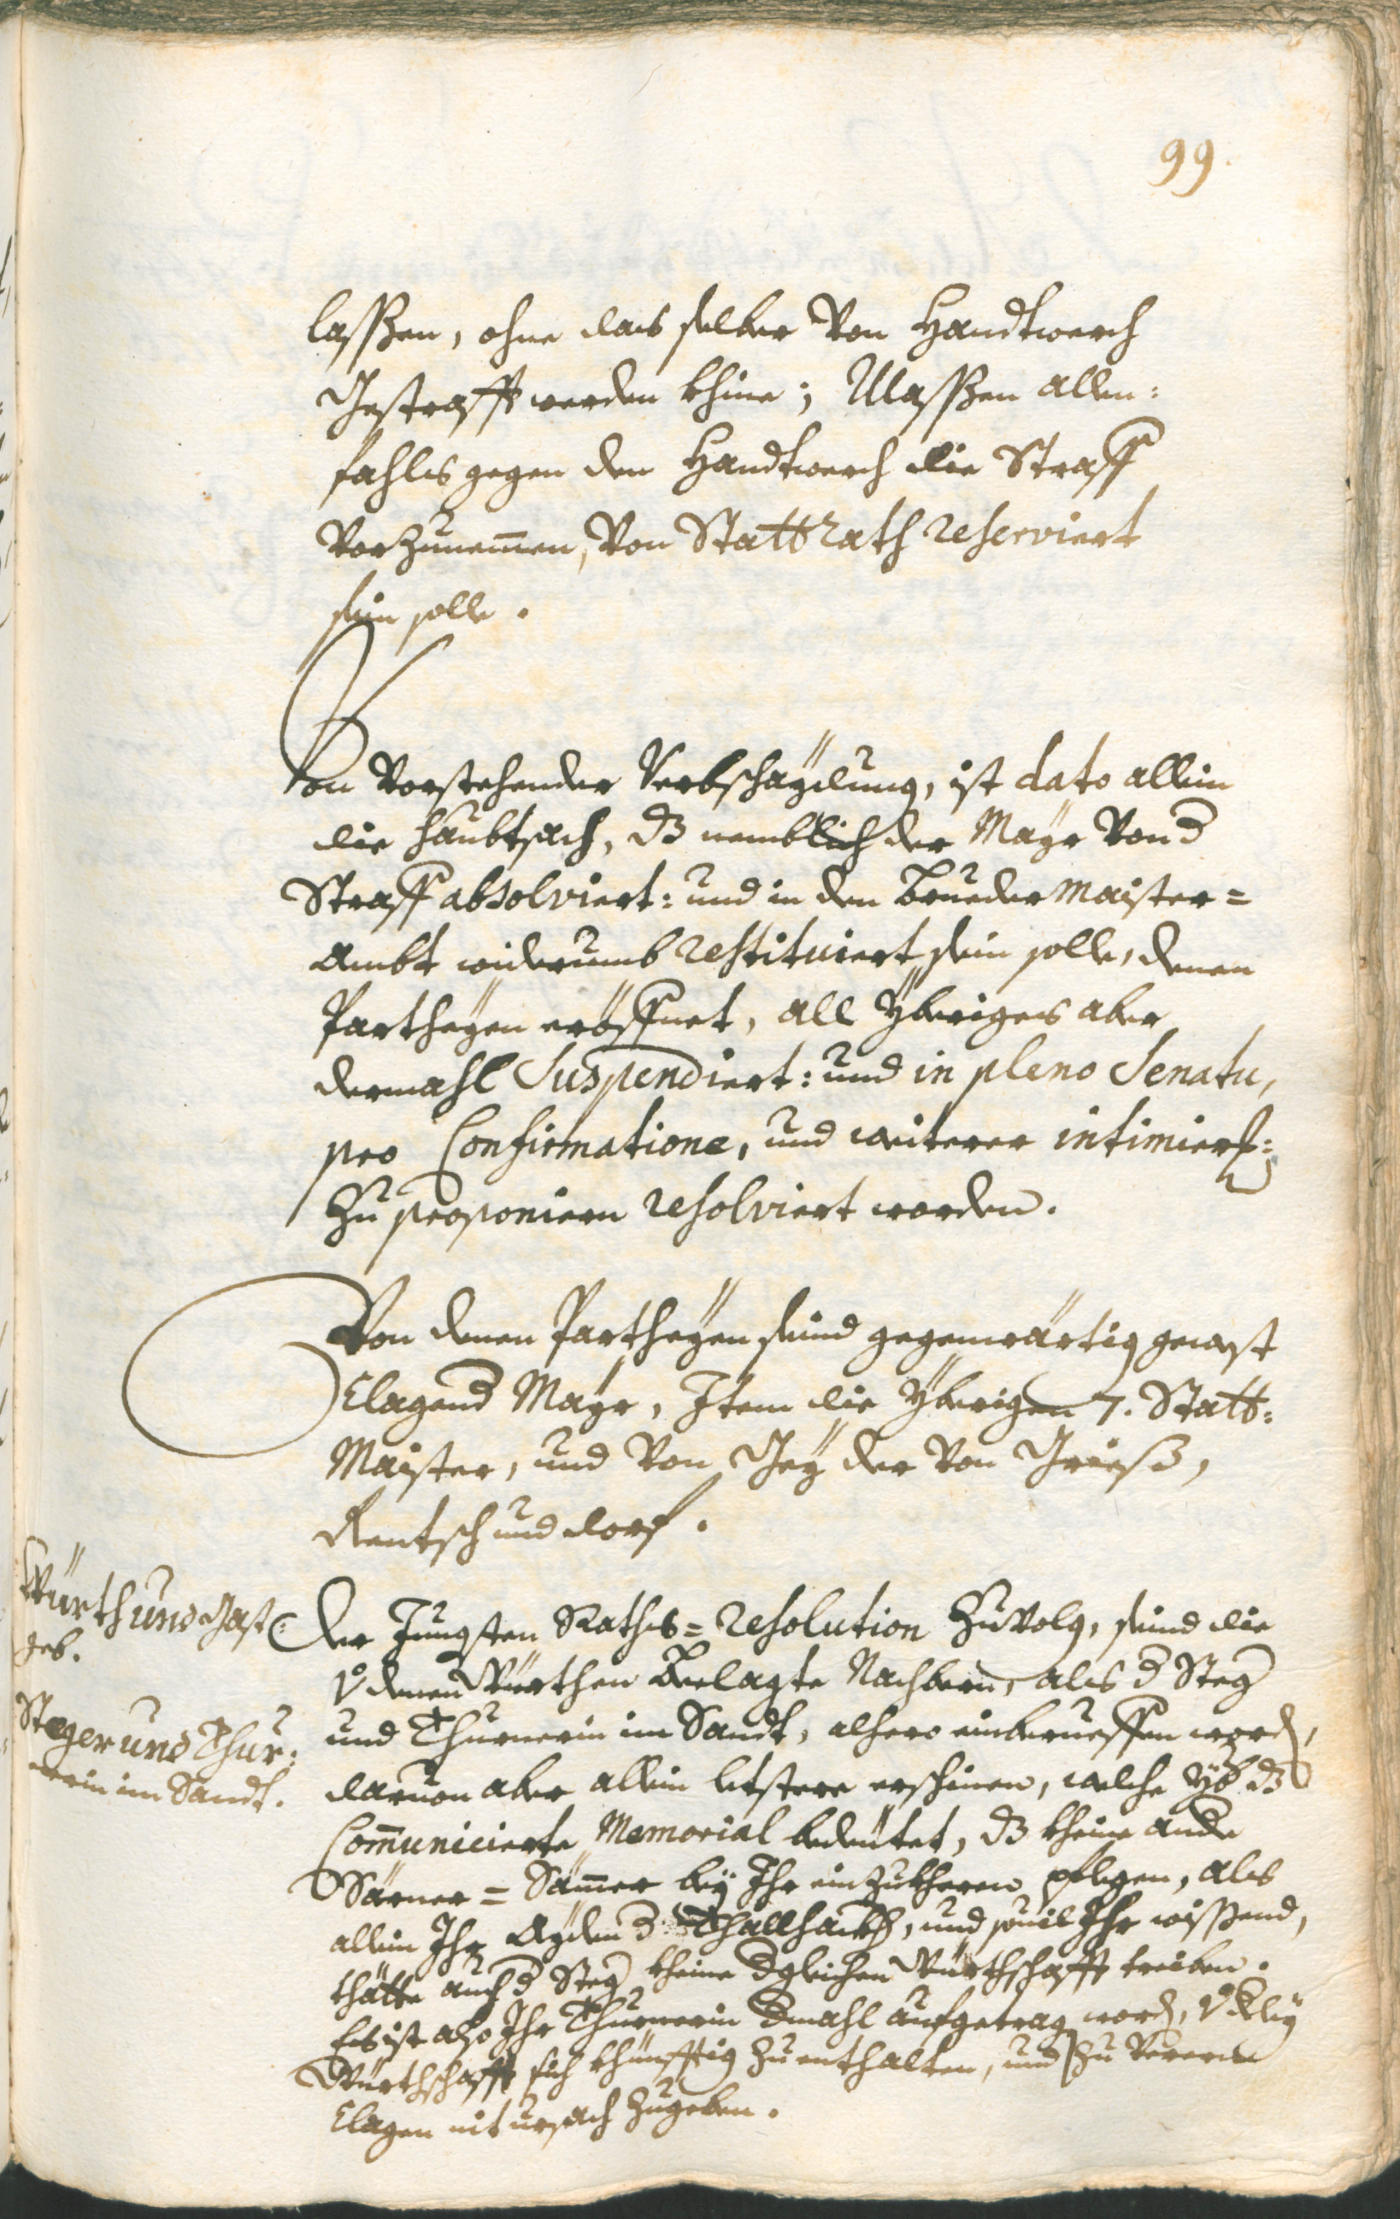 99.
lassßen, ohne das selber Von Handtwerch
Gestrafft werden khine; Massßen allen=
fahls gegen den Handtwerch die Straff
Vorzunemmen, Von Stattrath reserviert
sein solle.
Von vorstehender Verbschaydung, ist dato allein
die haubtsach, dz nemblich der Mayr Von d
Straff absolviert: und in den Brueder Maister=
Ambt widerumb restituiert sein solle, denen
Partheyen eröffnet, all yberiges aber
dermahl Suspendiert: und in pleno Senatu,
pro Confirmatione, und weiterer intimier:
Zu proponiern resolviert worden.
Von denen Partheyen seind gegenwärtig gewest
Clagend Mayr, Item die yberigen 7. Statt=
Maister, und Von Gey der Von Grieß,
Rentsch und dorf.
Würth und Gast=
geb.
Steger und Thur=
nerin im Sandt.
Der Jungsten Raths=resolution Zuvolg, seind die
v denen Würthen Beclagte Nachbern, als d Steg
und Thurnerin im Sandt, alhero einberueffen word,
daruon aber allein letstere erschinen, welche yb dz
Communicierte Memorial bedeutet, dz kheine ande
Sarner=Sammer bey Ihr einzukheren pflegen, als
allein Ihr Ayden d Thallhackh, und souil Ihr wissend,
thätte auch d Steg kheine dgleichen Würthschafft treiben.
Es ist also Ihr Thurnerin dmahl aufgetrag word, v
Würthschafft sich khünfftig zu enthalten, und zu
Clagen nit ursach Zugeben.